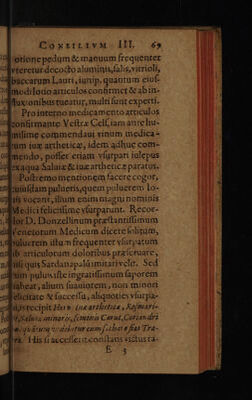 CONSILIVM III. 69
lotione pedum & manuum frequenter
vteretur decocto aluminis, salis, vitrioli,
baccarum Lauri, iunip. quantum eius-
modi lotio articulos confirmet & ab in-
fluxionibus tueatur, multi sunt experti.
Pro interno medicamento articulos
confirmante Vestræ Cels. iam ante hu-
millime commendaui vinum medica-
tum iuæ artheticæ, idem adhuc com-
mendo, posset etiam vsurpari iulepus
ex aqua Saluiæ & iuæ artheticæ paratus.
Postremo mentionem facere cogor,
cuiusdam pulueris, quem puluerem
vocant, illum enim magni nominis
Medici felicissime vsurparunt. Recor-
dor D. Donzellinum præstantissimum
Venetorum Medicum dicere solitum,
puluerem istum frequenter vsurpatum
ab articulorum doloribus præseruare,
nisi quis Sardanapalū imitari velit. Sed
cum puluis iste ingratissimum saporem
habeat, alium suauiorem, non minori
felicitate & successu, aliquoties vsurpa-
ui, recipit Herb. iuæ artheticæ, Rosmari-
ni, Saluia minoris, seminis Carui, Coriandri
cum sachari fiat Tra-
gea. His si accesserit constans victus ra-
E 3